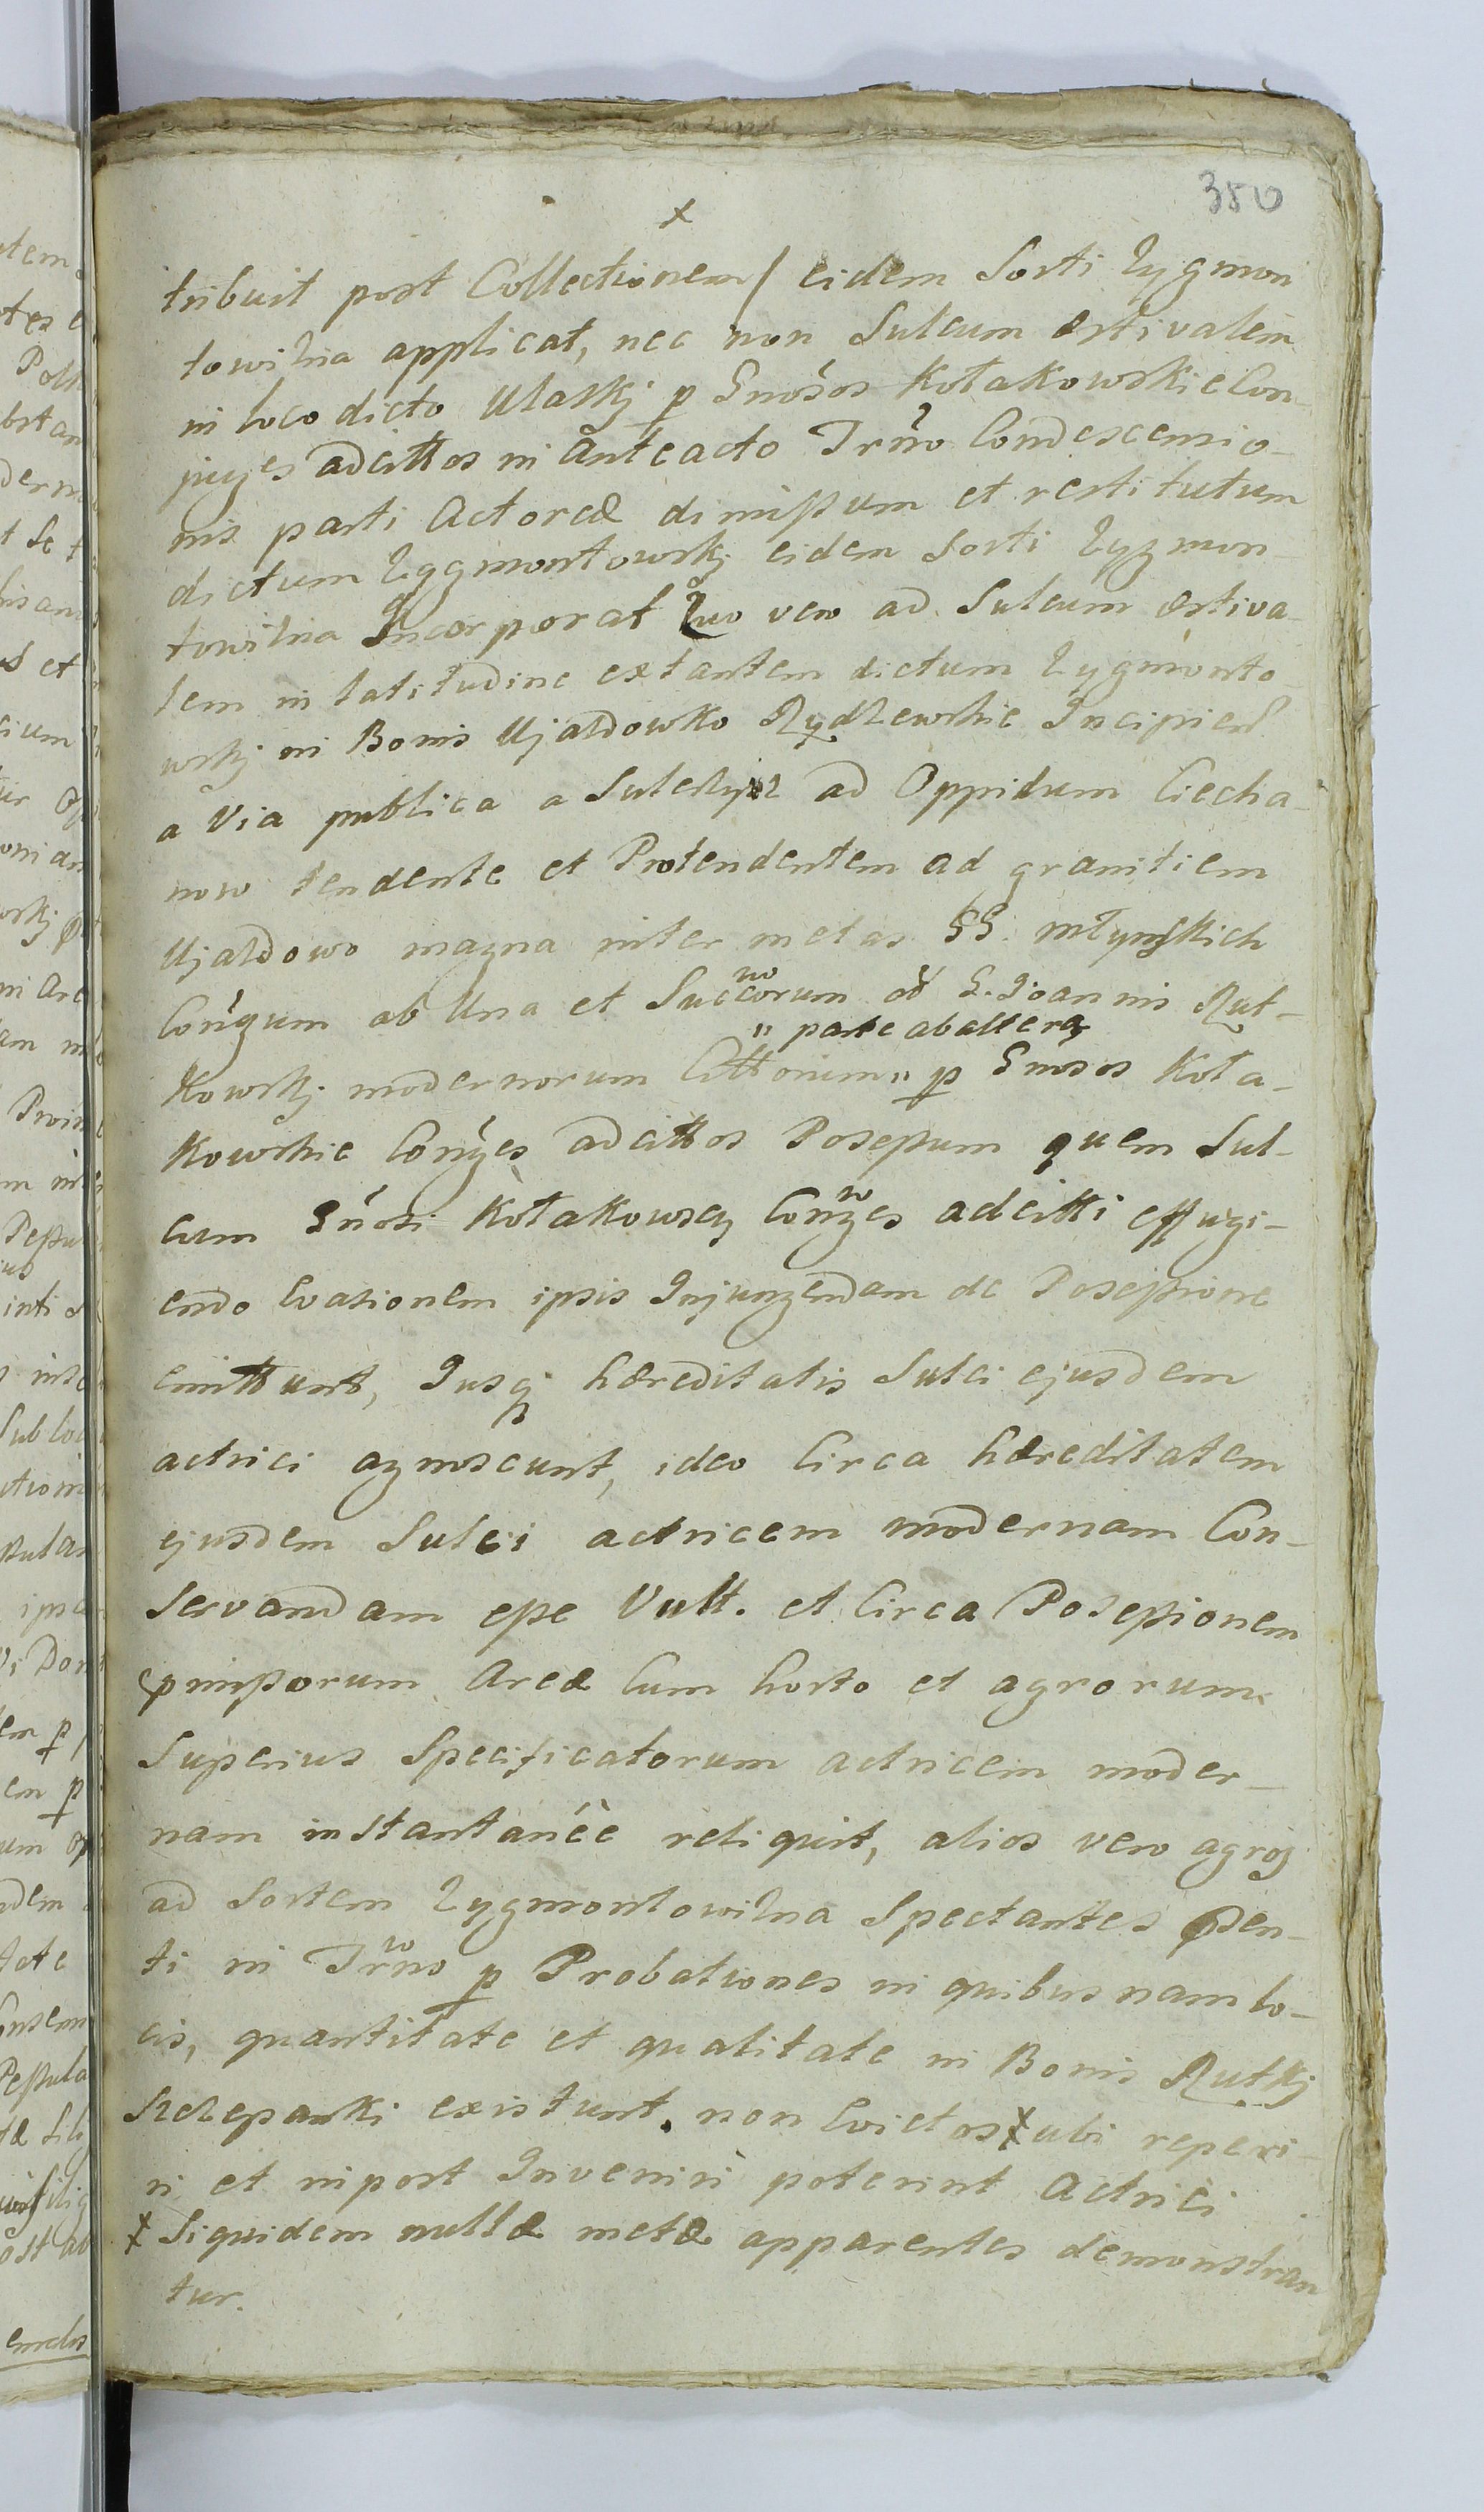 380
x
tribuit post Collectionem/ eidem Sorti Zygmon
towizna applicat, nec non Sulcum æstivalem
in loco dicto Ulaski p Gnosos Kołakowskie Con-
juges adcittos in anteacto Trno Condescensio-
nis parti Actoreæ dimissum et restitutum
dictum Zygmontowskj eidem Sorti Zygmon-
towizna Incorporat Quo vero ad Sulcum æstiva-
lem in latitudine extantem dictum Zygmonto-
wskj in Bonis Ujazdowko Rydzewskie Incipien
a Via publica a Sulerzyz ad Oppidum Ciecha-
now tendente et Protendentem ad granitiem
Ujazdowo magna inter metas GG. Młynskich
Conjgum ab Una et Succorum oð G. Joannis Rut-
" parte ab altera
kowskj modernorum Cittorum " p Gnosos Koła-
kowskie Conjges adcittos Posessum quem Sul-
cum Gnosi Kołakowscy Conjges adcitti effugi-
endo Evasionem ipsis Injungendam de Posessione
emittunt, Jusq hæreditatis Sulci ejusdem
actrici agnoscunt, ideo Circa hæreditatem
ejusdem Sulci actricem modernam Con-
servandam esse Vult. et Circa Possessionem
pmissorum Areæ Cum horto et agrorum
Superius Specificatorum actricem moder-
nam instantanéè reliquit, alios vero agros
ad Sortem Zygmontowizna Spectantes psen-
ti in Trno p Probationes in quibusnam lo-
cis, quantitate et qualitate in Bonis Rutkj
Szczepanki existunt. non Evictos x ubi reperi-
ri et inpost Inveniri poterint Actrici
x Siquidem nullæ metæ apparentes demonstran
tur.